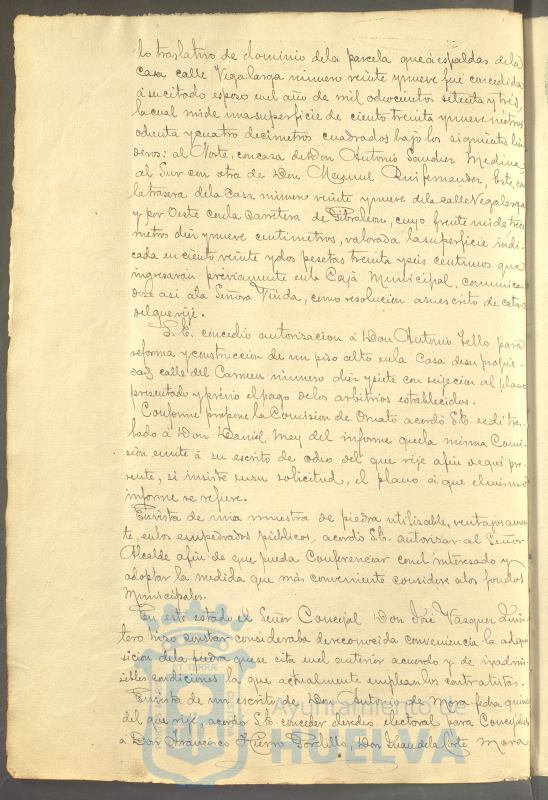 lo traslativo de dominio de la parcela que á espaldas de la
casa calle Vegalarga número veinte y nueve fué concedida
á su citado esposo en el año de mil ochocientos setenta y tres
la cual mide una superficie de ciento treinta y nueve metros
ochenta y cuatro decimetros cuadrados bajo los siguientes lin
deros: al Norte, con casa de Don Antonio Sanchez Medina,
al Sur con otra de Don Manuel Ruifernandez, Este, con
la trasera de la casa número veinte y nueve de la calle Vegalarga
y por Oeste con la Carretera de Gibraleon, cuyo frente mide trece
metros diez y nueve centimetros, valorada la superficie indi
cada en ciento veinte y dos pesetas treinta y seis centimos que
ingresarán préviamente en la Caja Municipal, comunican
dose asi á la Señora Viuda, como resolucion á su escrito de catorce
del que rije.
S.E. concedió autorizacion á Don Antonio Tello para
reforma y construccion de un piso alto en la Casa de su propie-
dad calle del Carmen número diez y siete con sujecion al plano
presentado y prévio el pago de los arbitrios establecidos.
Conforme propone la Comision de Ornato acordó S.E. se dé tras-
lado á Don Daniel Mey del informe que la misma Comi-
sion emite á su escrito de ocho del que rije afin de que pre-
sente, si insiste en su solicitud, el plano á que el mismo
informe se refiere.
En vista de una muestra de piedra utilizable, ventajosamen
te, en los empedrados públicos, acordó S.E. autorizar al Señor
Alcalde afin de que pueda conferenciar con el interesado y
adoptar la medida que más conveniente considere á los fondos
Municipales.
En este estado el Señor Concejal Don José Vazquez Quin
tero hizo constar consideraba de reconocida conveniencia la adqui
sicion de la piedra que se cita en el anterior acuerdo y de inadmi
sibles condiciones la que actualmente emplean los contratistas.
En vista de un escrito de Don Antonio de Mora fecha quince
del que rije, acordó S.E. conceder derecho electoral para Concejales
a Don Francisco Hierro Gordillo, Don Juan de la Corte Mora
Ayuntamiento de
HUELVA